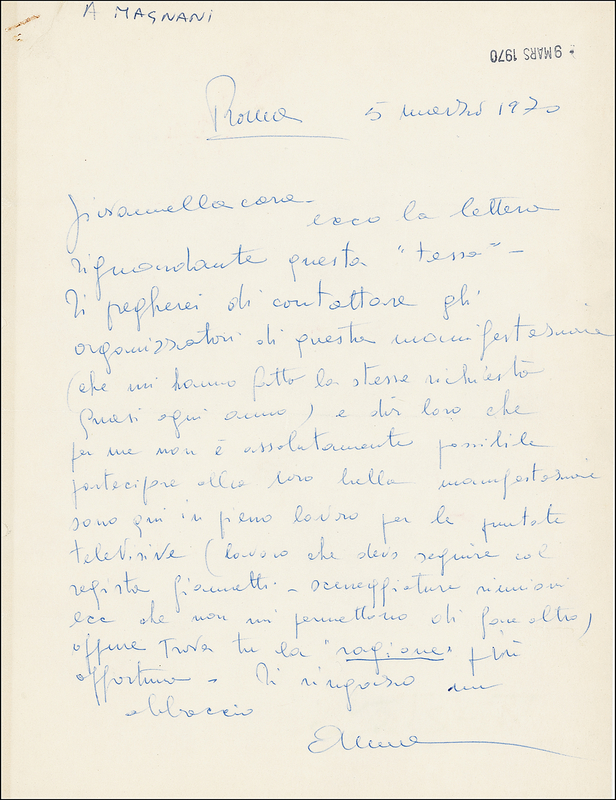 A MAGNANI
9 MARS 1970
Roma 5 marzo 1970
Giovannella cara -
ecco la lettera
riguardante questa "tessa" -
Ti pregherei di contattare gli
organizzatori di questa manifestazione
(che mi hanno fatto la stessa richiesta
quasi ogni anno) e dir loro che
per me non è assolutamente possibile
partecipare alla loro bella manifestazione
sono qui in pieno lavoro per le puntate
televisive (lavoro che devo seguire col
regista Giannetti - sceneggiature riunioni
ecc che non mi permettono di fare altro)
oppure trova tu la "ragione" più
opportuna - Ti ringrazio un
abbraccio
Anna